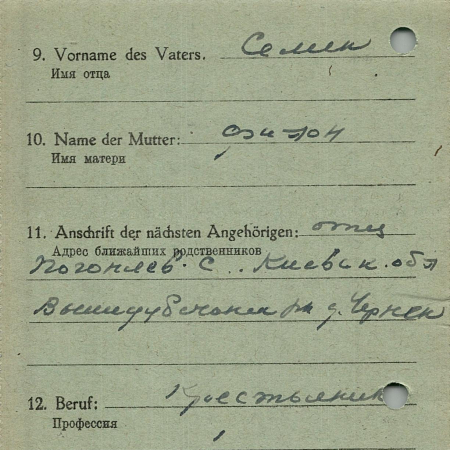 9. Vorname des Vaters. Семен
Имя отца
10. Name der Mutter:
Имя матери
11. Anschrift der nächsten Angehörigen: отец
Адрес ближайших родственников
С. Киевск. обл
р-н д.
12. Beruf: Крестьянин
Профессия